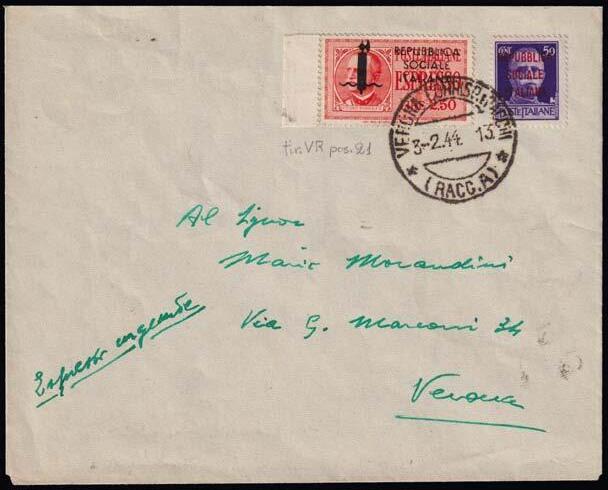 REPUBBLICA
SOCIALE
ITALIANA
POSTE ITALIANE
ESPRESSO
2.50
50
REPUBBLICA
SOCIALE
ITALIANA
POSTE ITALIANE
VERONA CORRISP. PACCHI
3-2.44 13
(RACC.A)
tir. VR pos. 21
Al Signor
Mario Morandini
Via G. Marconi 34
Espresso urgente
Verona